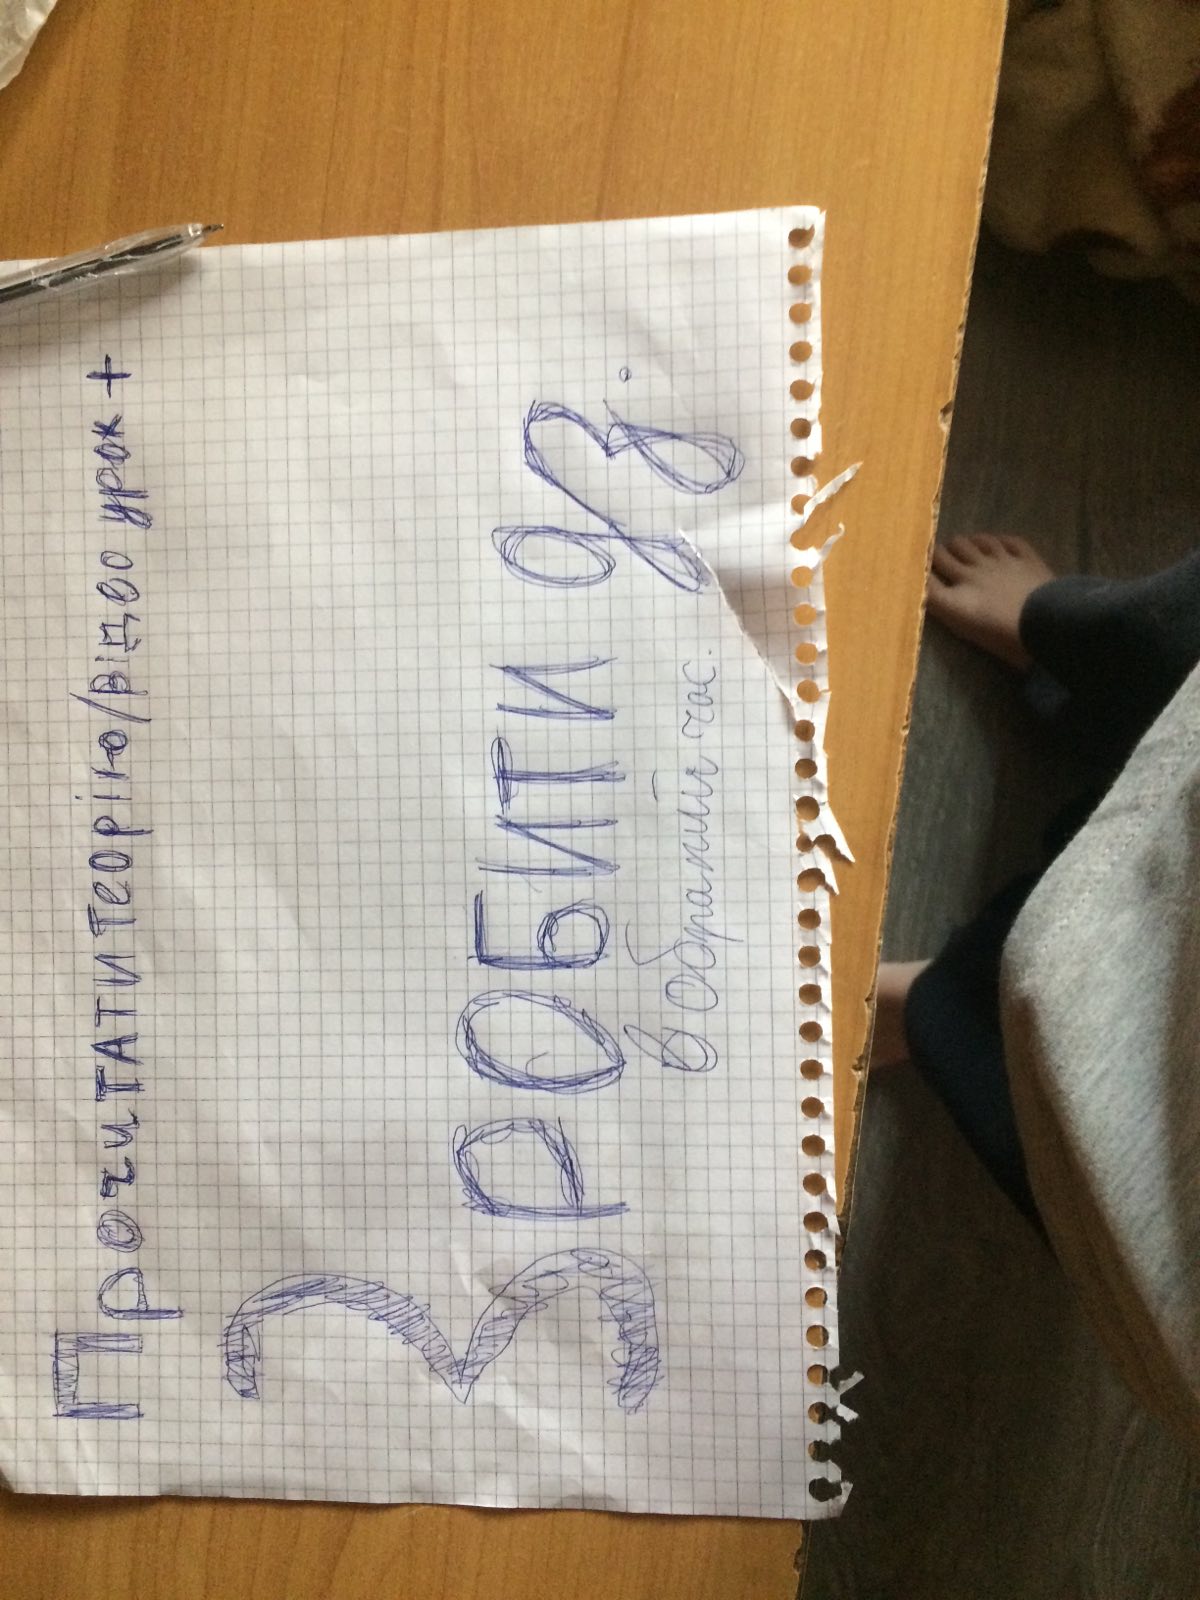 Прочитати теорію/відео урок +
Зробити дз.
в обраний час.